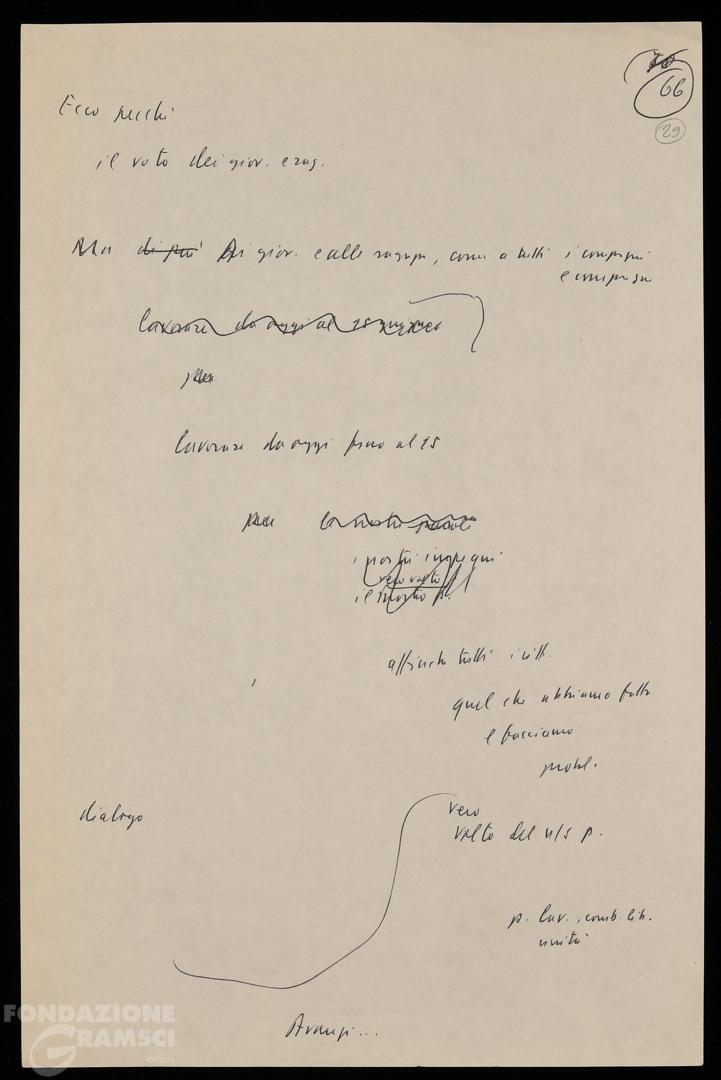 66
29
Ecco perché
il voto dei giov. e rag.
Ma di più Ai giov. e alle ragazze, come a tutti i compagni
e compagne
lavorare da oggi al 15 giugno
per
lavorare da oggi fino al 15
per la nostra
i nostri impegni
vero volto
il nostro p.
affinché tutti i citt.
quel che abbiamo fatto
e facciamo
probl.
dialogo
vero
volto del n/s p.
p. lav., comb. lib.
unità
Avanti...
FONDAZIONE
GRAMSCI
onlus